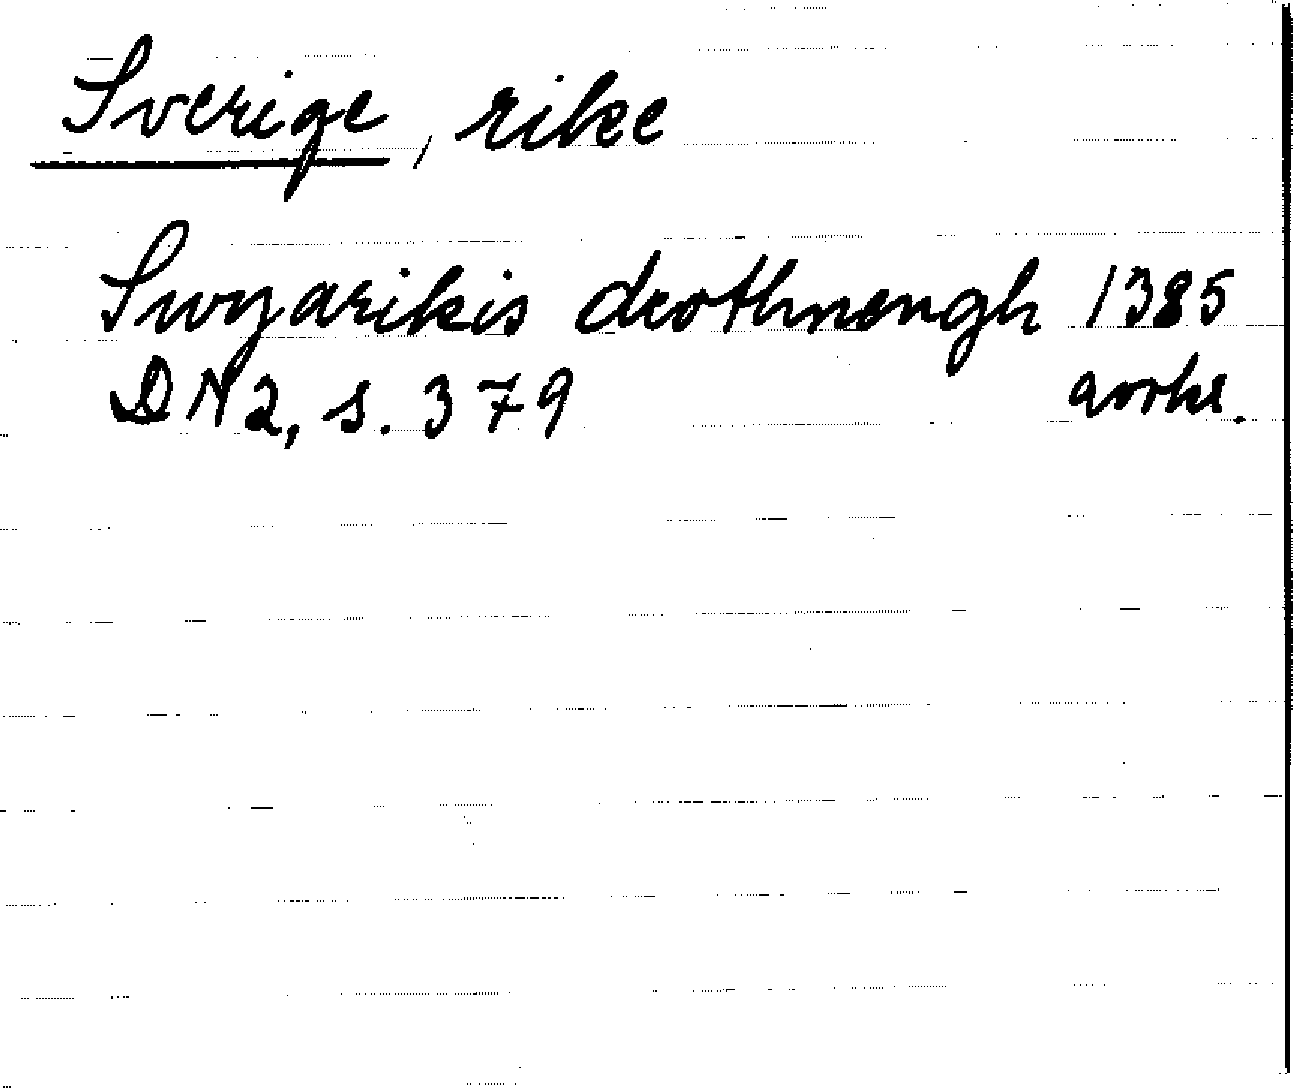 Sverige, rike
Swyarikis drothnængh 1385
DN 2, s. 379 avskr.